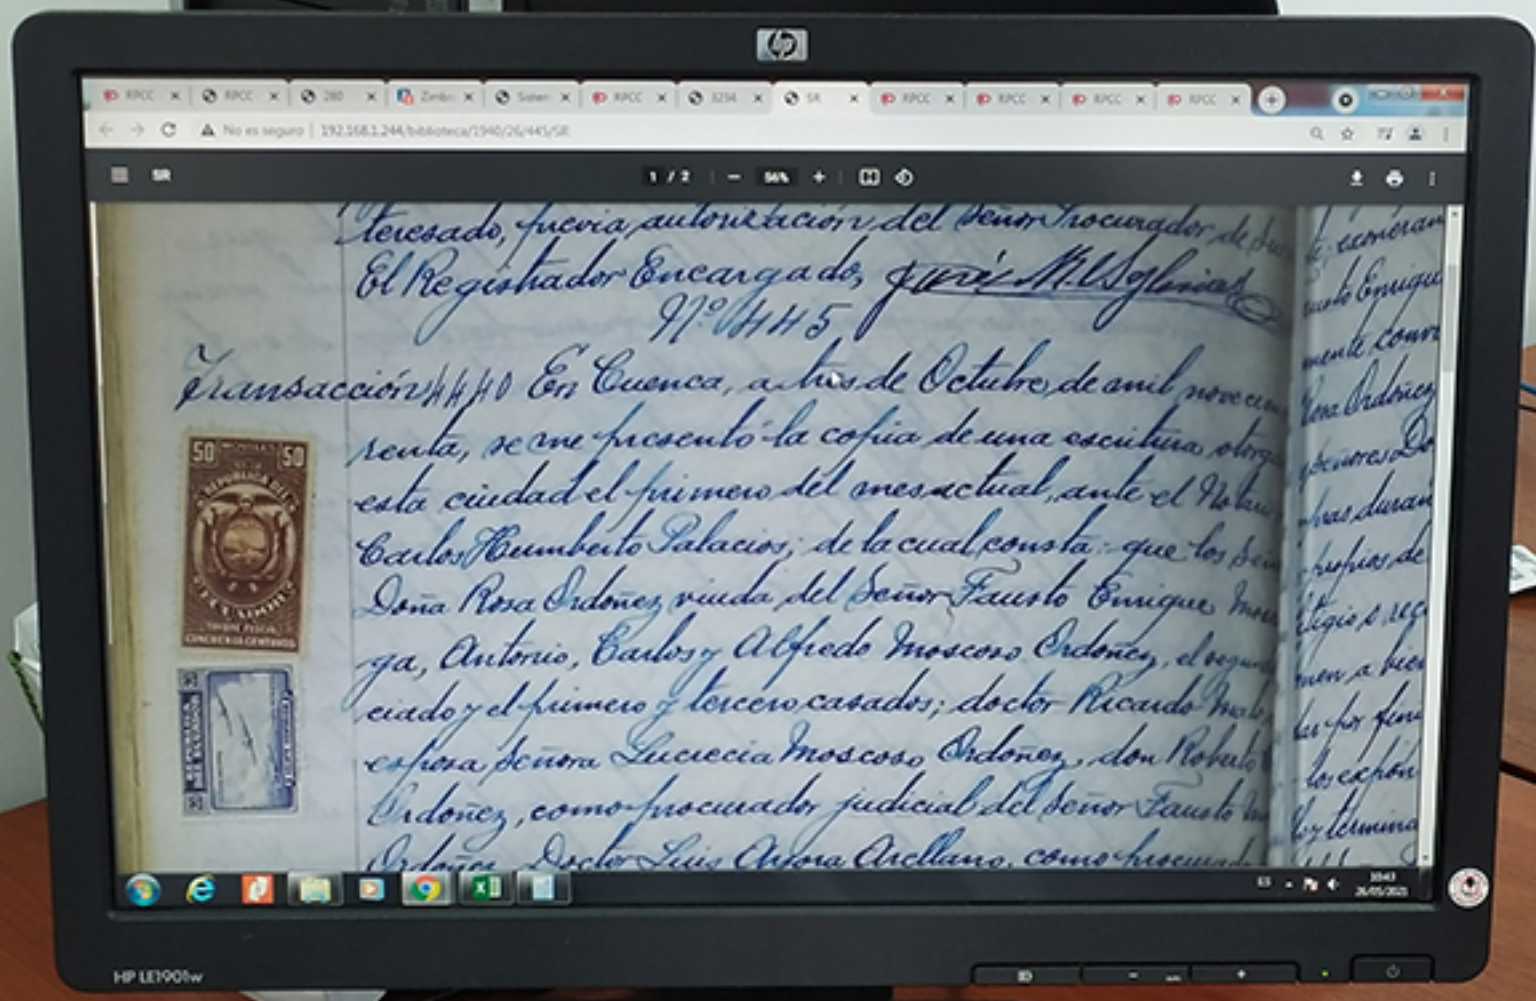 RPCC
RPCC
280
Zimbr
Sistem
RPCC
3234
SR
RPCC
RPCC
RPCC
RPCC
No es seguro | 192.168.1.244/biblioteca/1940/26/445/SR
SR
1 / 2
56%
teresado, previa autorización del Señor Procurador de
El Registrador Encargado,
Nº 445
Transacción 4440 En Cuenca, a tres de Octubre de mil novecien
renta, se me presentó la copia de una escritura otorg
esta ciudad el primero del mes actual, ante el Notari
Carlos Humberto Palacios; de la cual consta: que los Señ
Doña Rosa Ordoñez viuda del Señor Fausto Enrique Mosc
ga, Antonio, Carlos y Alfredo Moscoso Ordoñez, el segun
ciado y el primero y tercero casados; doctor Ricardo Malo
esposa Señora Lucrecia Moscoso Ordoñez, don Roberto
Ordoñez, como procurador judicial del Señor Fausto
Ordoñez, Doctor Luis Arellano, como procurad
exoneran
Enrique
mente conv
Rosa Ordoñez
Señores Do
duran
propios de
men a bien
por
los
termina
50 50
REPUBLICA DEL
ECUADOR
TIMBRE FISCAL
CINCUENTA CENTAVOS
ES
10:43
26/05/2021
hp
HP LE1901w